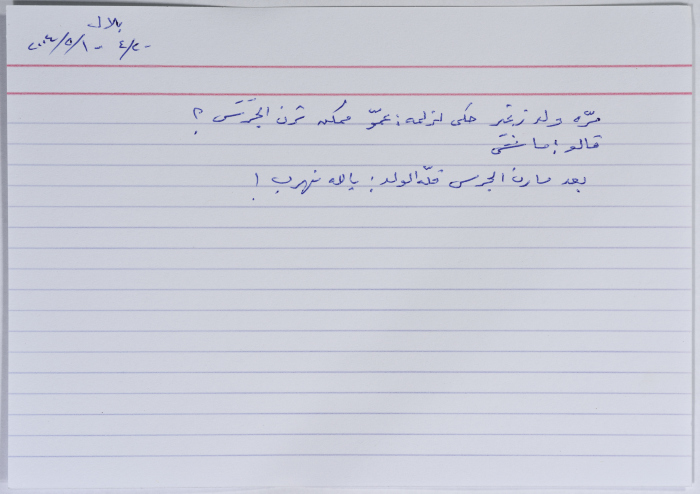 بلال
٤/٢٠ - ٢٠٠٤/٥/١
مرّه ولد زغير حكى لزلمه: عموّ ممكن ترن الجَرَسَ؟
قالو: ما شي
بعد ما رن الجرس قلّه الولد: يالله نهرب!